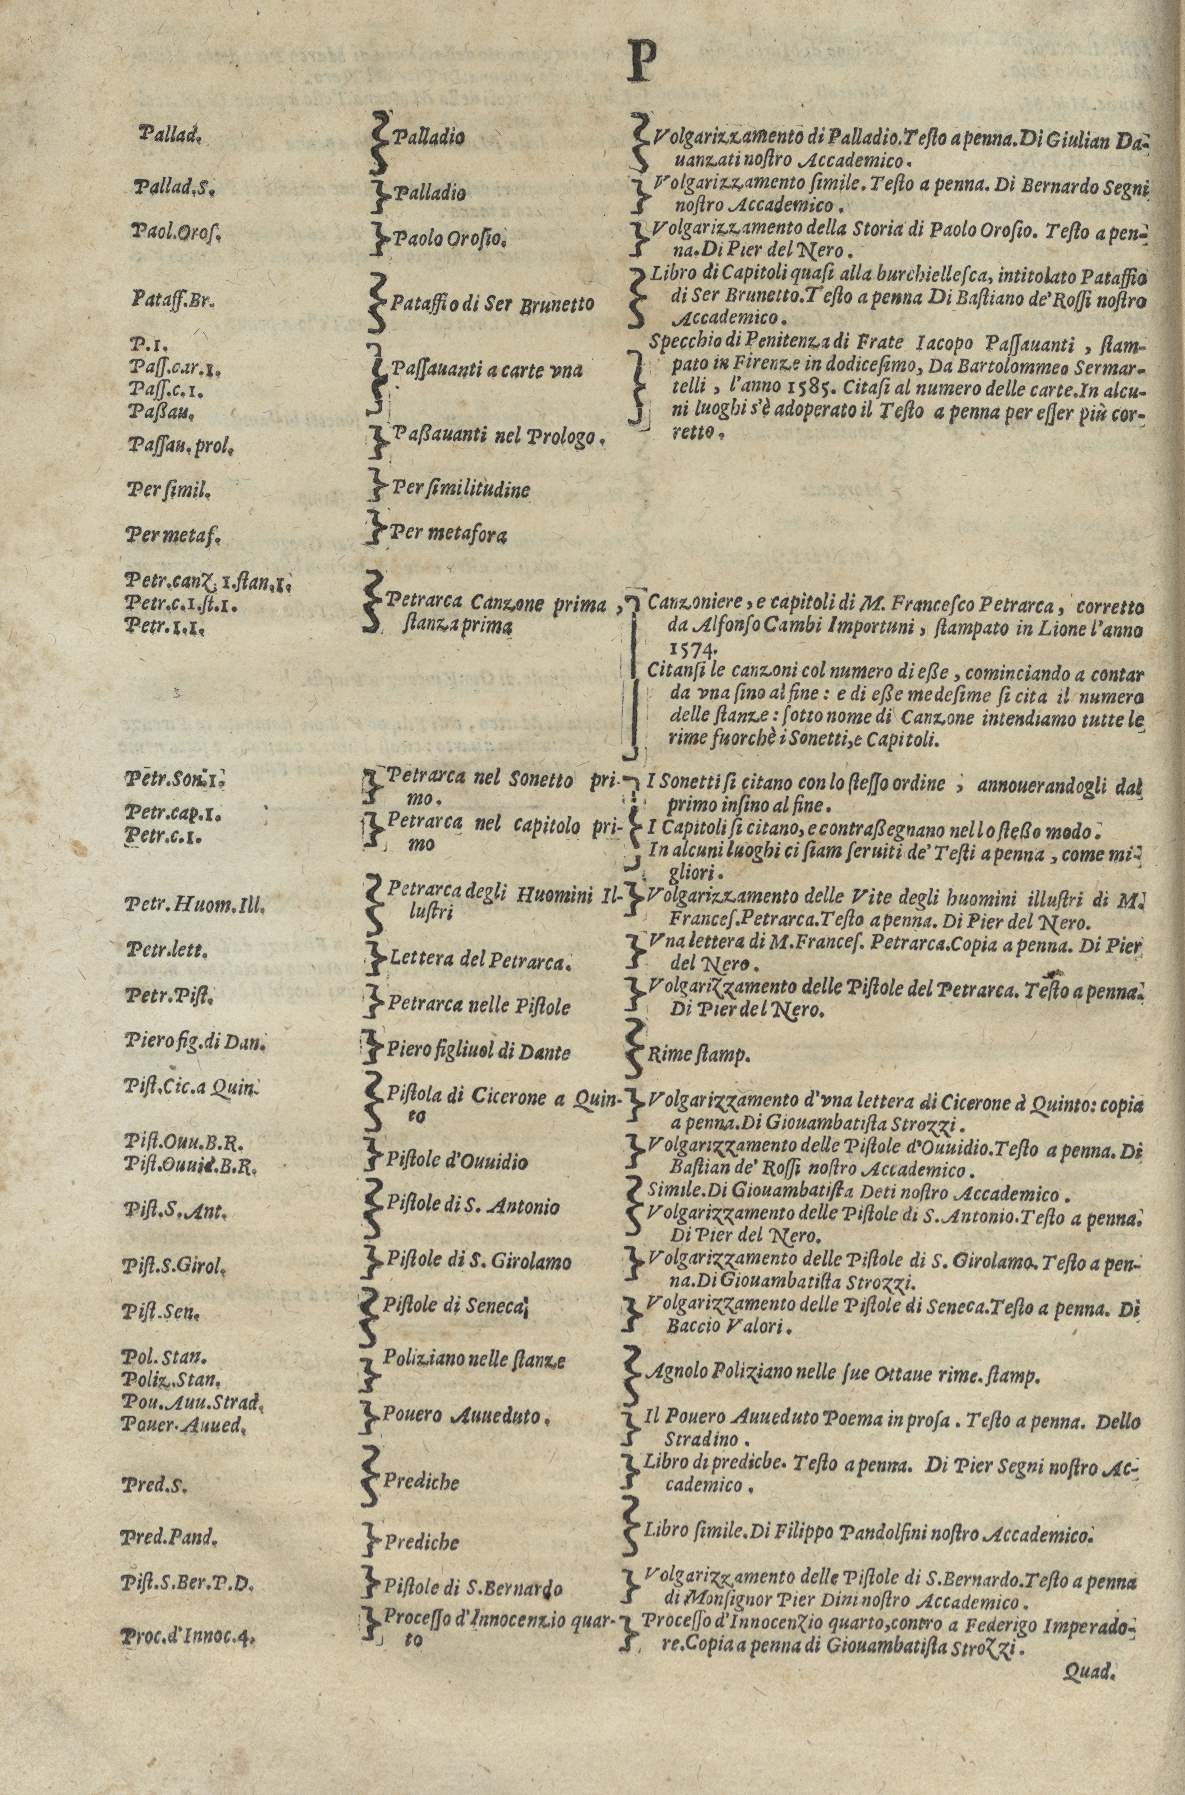 P
Pallad.
Palladio
Volgarizzamento di Palladio. Testo a penna. Di Giulian Da-
uanzati nostro Accademico.
Pallad. S.
Palladio
Volgarizzamento simile. Testo a penna. Di Bernardo Segni
nostro Accademico.
Paol. Oros.
Paolo Orosio.
Volgarizzamento della Storia di Paolo Orosio. Testo a pen-
na. Di Pier del Nero.
Pataff. Br.
Pataffio di Ser Brunetto
Libro di Capitoli quasi alla burchiellesca, intitolato Pataffio
di Ser Brunetto. Testo a penna Di Bastiano de' Rossi nostro
Accademico.
P. 1.
Pass. car. 1.
Pass. c. 1.
Paßau.
Passauanti a carte vna
Specchio di Penitenza di Frate Iacopo Passauanti, stam-
pato in Firenze in dodicesimo, Da Bartolommeo Sermar-
telli, l'anno 1585. Citasi al numero delle carte. In alcu-
ni luoghi s'è adoperato il Testo a penna per esser più cor-
retto.
Passau. prol.
Paßauanti nel Prologo.
Per simil.
Per similitudine
Per metaf.
Per metafora
Petr. canz. 1. stan. 1.
Petr. c. 1. st. 1.
Petr. 1. 1.
Petrarca Canzone prima,
stanza prima
Canzoniere, e capitoli di M. Francesco Petrarca, corretto
da Alfonso Cambi Importuni, stampato in Lione l'anno
1574.
Citansi le canzoni col numero di eße, cominciando a contar
da vna sino al fine: e di eße medesime si cita il numero
delle stanze: sotto nome di Canzone intendiamo tutte le
rime fuorchè i Sonetti, e Capitoli.
Petr. Son. 1.
Petrarca nel Sonetto pri-
mo.
I Sonetti si citano con lo stesso ordine, annouerandogli dal
primo insino al fine.
Petr. cap. 1.
Petr. c. 1.
Petrarca nel capitolo pri-
mo
I Capitoli si citano, e contraßegnano nello steßo modo.
In alcuni luoghi ci siam seruiti de' Testi a penna, come mi-
gliori.
Petr. Huom. Ill.
Petrarca degli Huomini Il-
lustri
Volgarizzamento delle Vite degli huomini illustri di M.
Frances. Petrarca. Testo a penna. Di Pier del Nero.
Petr. lett.
Lettera del Petrarca.
Vna lettera di M. Frances. Petrarca. Copia a penna. Di Pier
del Nero.
Petr. Pist.
Petrarca nelle Pistole
Volgarizzamento delle Pistole del Petrarca. Testo a penna.
Di Pier del Nero.
Piero fig. di Dan.
Piero figliuol di Dante
Rime stamp.
Pist. Cic. a Quin.
Pistola di Cicerone a Quin-
to
Volgarizzamento d'vna lettera di Cicerone à Quinto: copia
a penna. Di Giouambatista Strozzi.
Pist. Ouu. B. R.
Pist. Ouuid. B. R.
Pistole d'Ouuidio
Volgarizzamento delle Pistole d'Ouuidio. Testo a penna. Di
Bastian de' Rossi nostro Accademico.
Simile. Di Giouambatista Deti nostro Accademico.
Pist. S. Ant.
Pistole di S. Antonio
Volgarizzamento delle Pistole di S. Antonio. Testo a penna.
Di Pier del Nero.
Pist. S. Girol.
Pistole di S. Girolamo
Volgarizzamento delle Pistole di S. Girolamo. Testo a pen-
na. Di Giouambatista Strozzi.
Pist. Sen.
Pistole di Seneca
Volgarizzamento delle Pistole di Seneca. Testo a penna. Di
Baccio Valori.
Pol. Stan.
Poliz. Stan.
Poliziano nelle stanze
Agnolo Poliziano nelle sue Ottaue rime. stamp.
Pou. Auu. Strad.
Pouer. Auued.
Pouero Auueduto.
Il Pouero Auueduto Poema in prosa. Testo a penna. Dello
Stradino.
Pred. S.
Prediche
Libro di prediche. Testo a penna. Di Pier Segni nostro Ac-
cademico.
Pred. Pand.
Prediche
Libro simile. Di Filippo Pandolfini nostro Accademico.
Pist. S. Ber. P. D.
Pistole di S. Bernardo
Volgarizzamento delle Pistole di S. Bernardo. Testo a penna
di Monsignor Pier Dini nostro Accademico.
Proc. d'Innoc. 4.
Processo d'Innocenzio quar-
to
Processo d'Innocenzio quarto, contro a Federigo Imperado-
re. Copia a penna di Giouambatista Strozzi.
Quad.